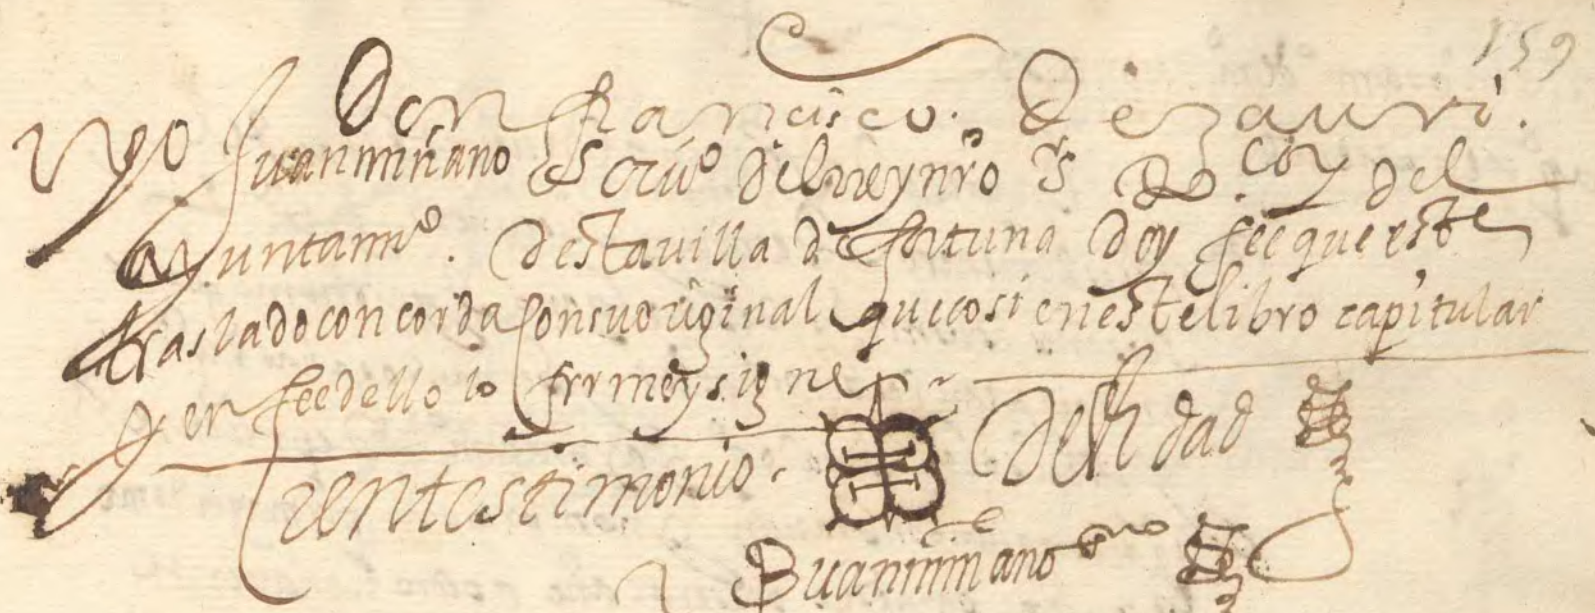 159
Don francisco. De zauri.
Yo Juan miñano escriuo del rey nro sr y del
ayuntamto. desta uilla de fortuna doy fee que este
traslado concorda con su original que cosi en este libro capitular
y en fee dello lo firme y signe
en testimonio de verdad
Juan miñano ssno